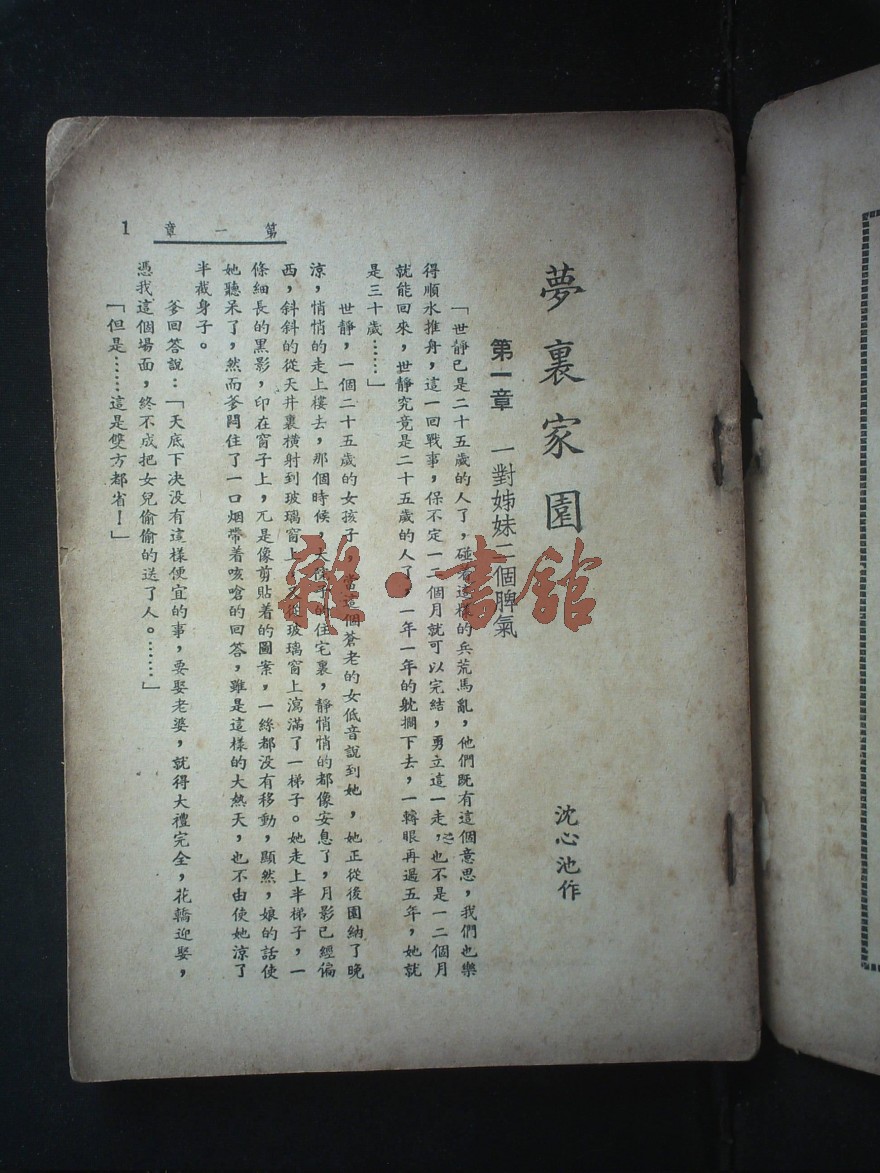 夢裏家園
沈心池作
第一章　一對姊妹二個脾氣
「世靜已是二十五歲的人了，碰着這樣的兵荒馬亂，他們既有這個意思，我們也樂
得順水推舟，這一回戰事，保不定一二個月就可以完結，勇立這一走，也不是一二個月
就能回來，世靜究竟是二十五歲的人了，一年一年的躭擱下去，一轉眼再過五年，她就
是三十歲……」
世靜，一個二十五歲的女孩子，當這個蒼老的女低音說到她，她正從後園納了晚
涼，悄悄的走上樓去，那個時候，的住宅裏，靜悄悄的都像安息了，月影已經偏
西，斜斜的從天井裏橫射到玻璃窗上，又從玻璃窗上瀉滿了一梯子。她走上半梯子，一
條細長的黑影，印在窗子上，兀是像剪貼着的圖案，一絲都沒有移動，顯然，娘的話使
她聽呆了，然而爹悶住了一口烟帶着咳嗆的回答，雖是這樣的大熱天，也不由使她涼了
半截身子。
爹回答說：「天底下決沒有這樣便宜的事，要娶老婆，就得大禮完全，花轎迎娶，
憑我這個場面，終不成把女兒偷偷的送了人。……」
「但是……這是雙方都省ー」
第一章
1
雜·書館